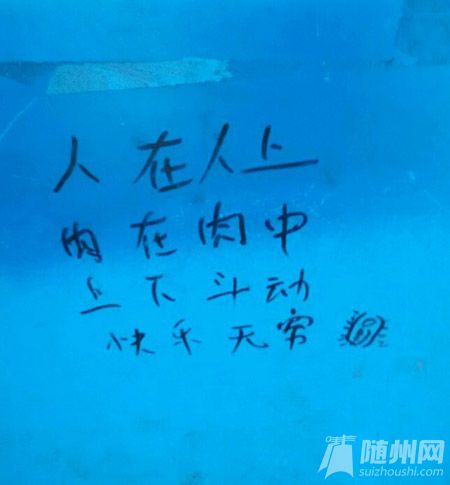 人在人上
肉在肉中
上下斗动
快乐无穷
随州网
suizhoushi.com